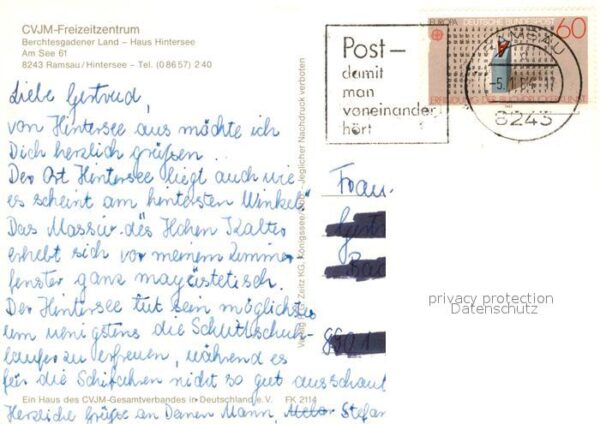 CVJM-Freizeitzentrum
Berchtesgadener Land – Haus Hintersee
Am See 61
8243 Ramsau/Hintersee – Tel. (0 86 57) 2 40
Liebe Gertrud,
von Hintersee aus möchte ich
Dich herzlich grüßen.
Der Ort Hintersee liegt auch wie
es scheint am hintersten Winkel.
Das Massiv des Hohen Kalter
erhebt sich vor meinem Zimmer-
fenster ganz majestetisch.
Der Hintersee tut sein möglichstes
um wenigstens die Schlittschuh-
läufer zu erfreuen, während es
für die Schifahrer nicht so gut ausschaut
Ein Haus des CVJM-Gesamtverbandes in Deutschland e.V. FK 2114
Herzliche Grüße an Deinen Mann, Stefan
Zeitz KG, Königssee/Obb. - Jeglicher Nachdruck verboten
Post –
damit
man
voneinander
hört
EUROPA DEUTSCHE BUNDESPOST
60
RAMSAU
8243
Frau
privacy protection
Datenschutz